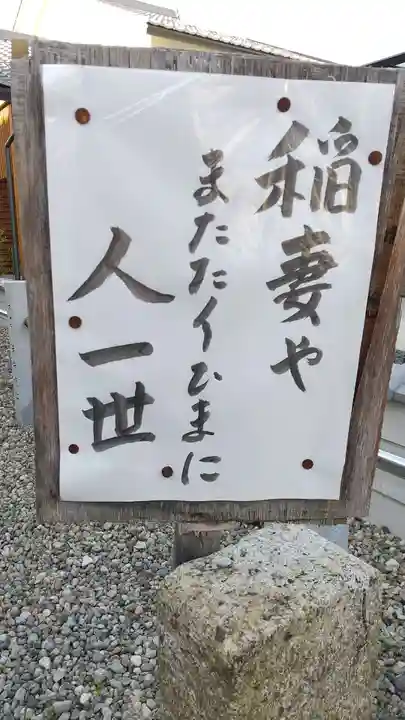 稲妻や
またたくひまに
人一世